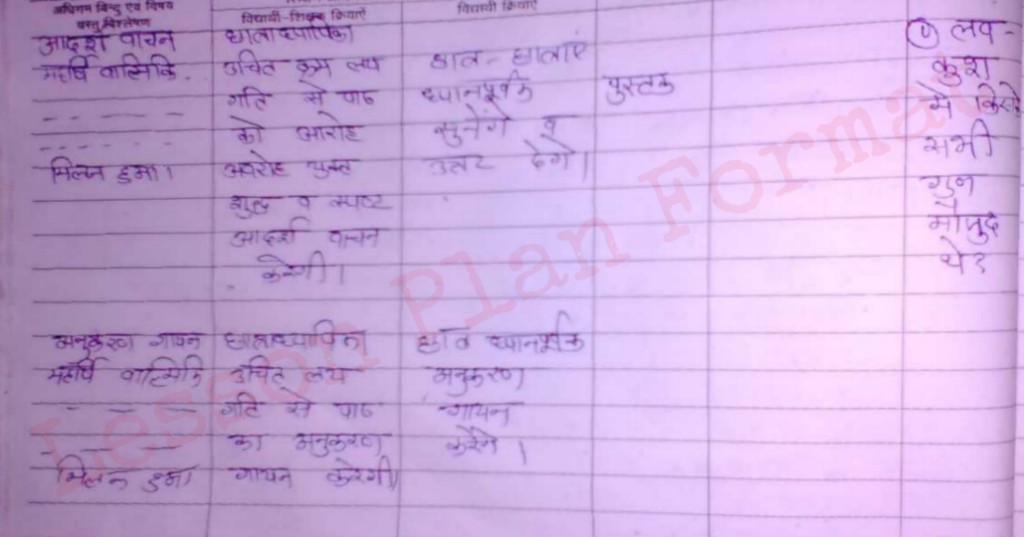 अधिगम बिन्दु एवं विषय वस्तु विश्लेषण विद्यार्थी-शिक्षक क्रियाएँ विद्यार्थी क्रियाएँ
आदर्श वाचन छात्राध्यापिका
महर्षि वाल्मिकि उचित क्रम लय छात्र-छात्राएं
- - - - - गति से पाठ ध्यानपूर्वक पुस्तक
- - - - - को आरोह सुनेंगे व
मिलन हुआ। अवरोह युक्त उत्तर देंगे।
शुद्ध व स्पष्ट
आदर्श वाचन
करेगी।
① लव-
कुश
में किसके
सभी
गुन
मौजुद
थे?
अनुकरण गायन छात्राध्यापिका छात्र ध्यानपूर्वक
महर्षि वाल्मिकि उचित लय अनुकरण
- - - गति से पाठ गायन
- - - - का अनुकरण करेंगे।
मिलन हुआ गायन करेगी।
Lesson Plan Format